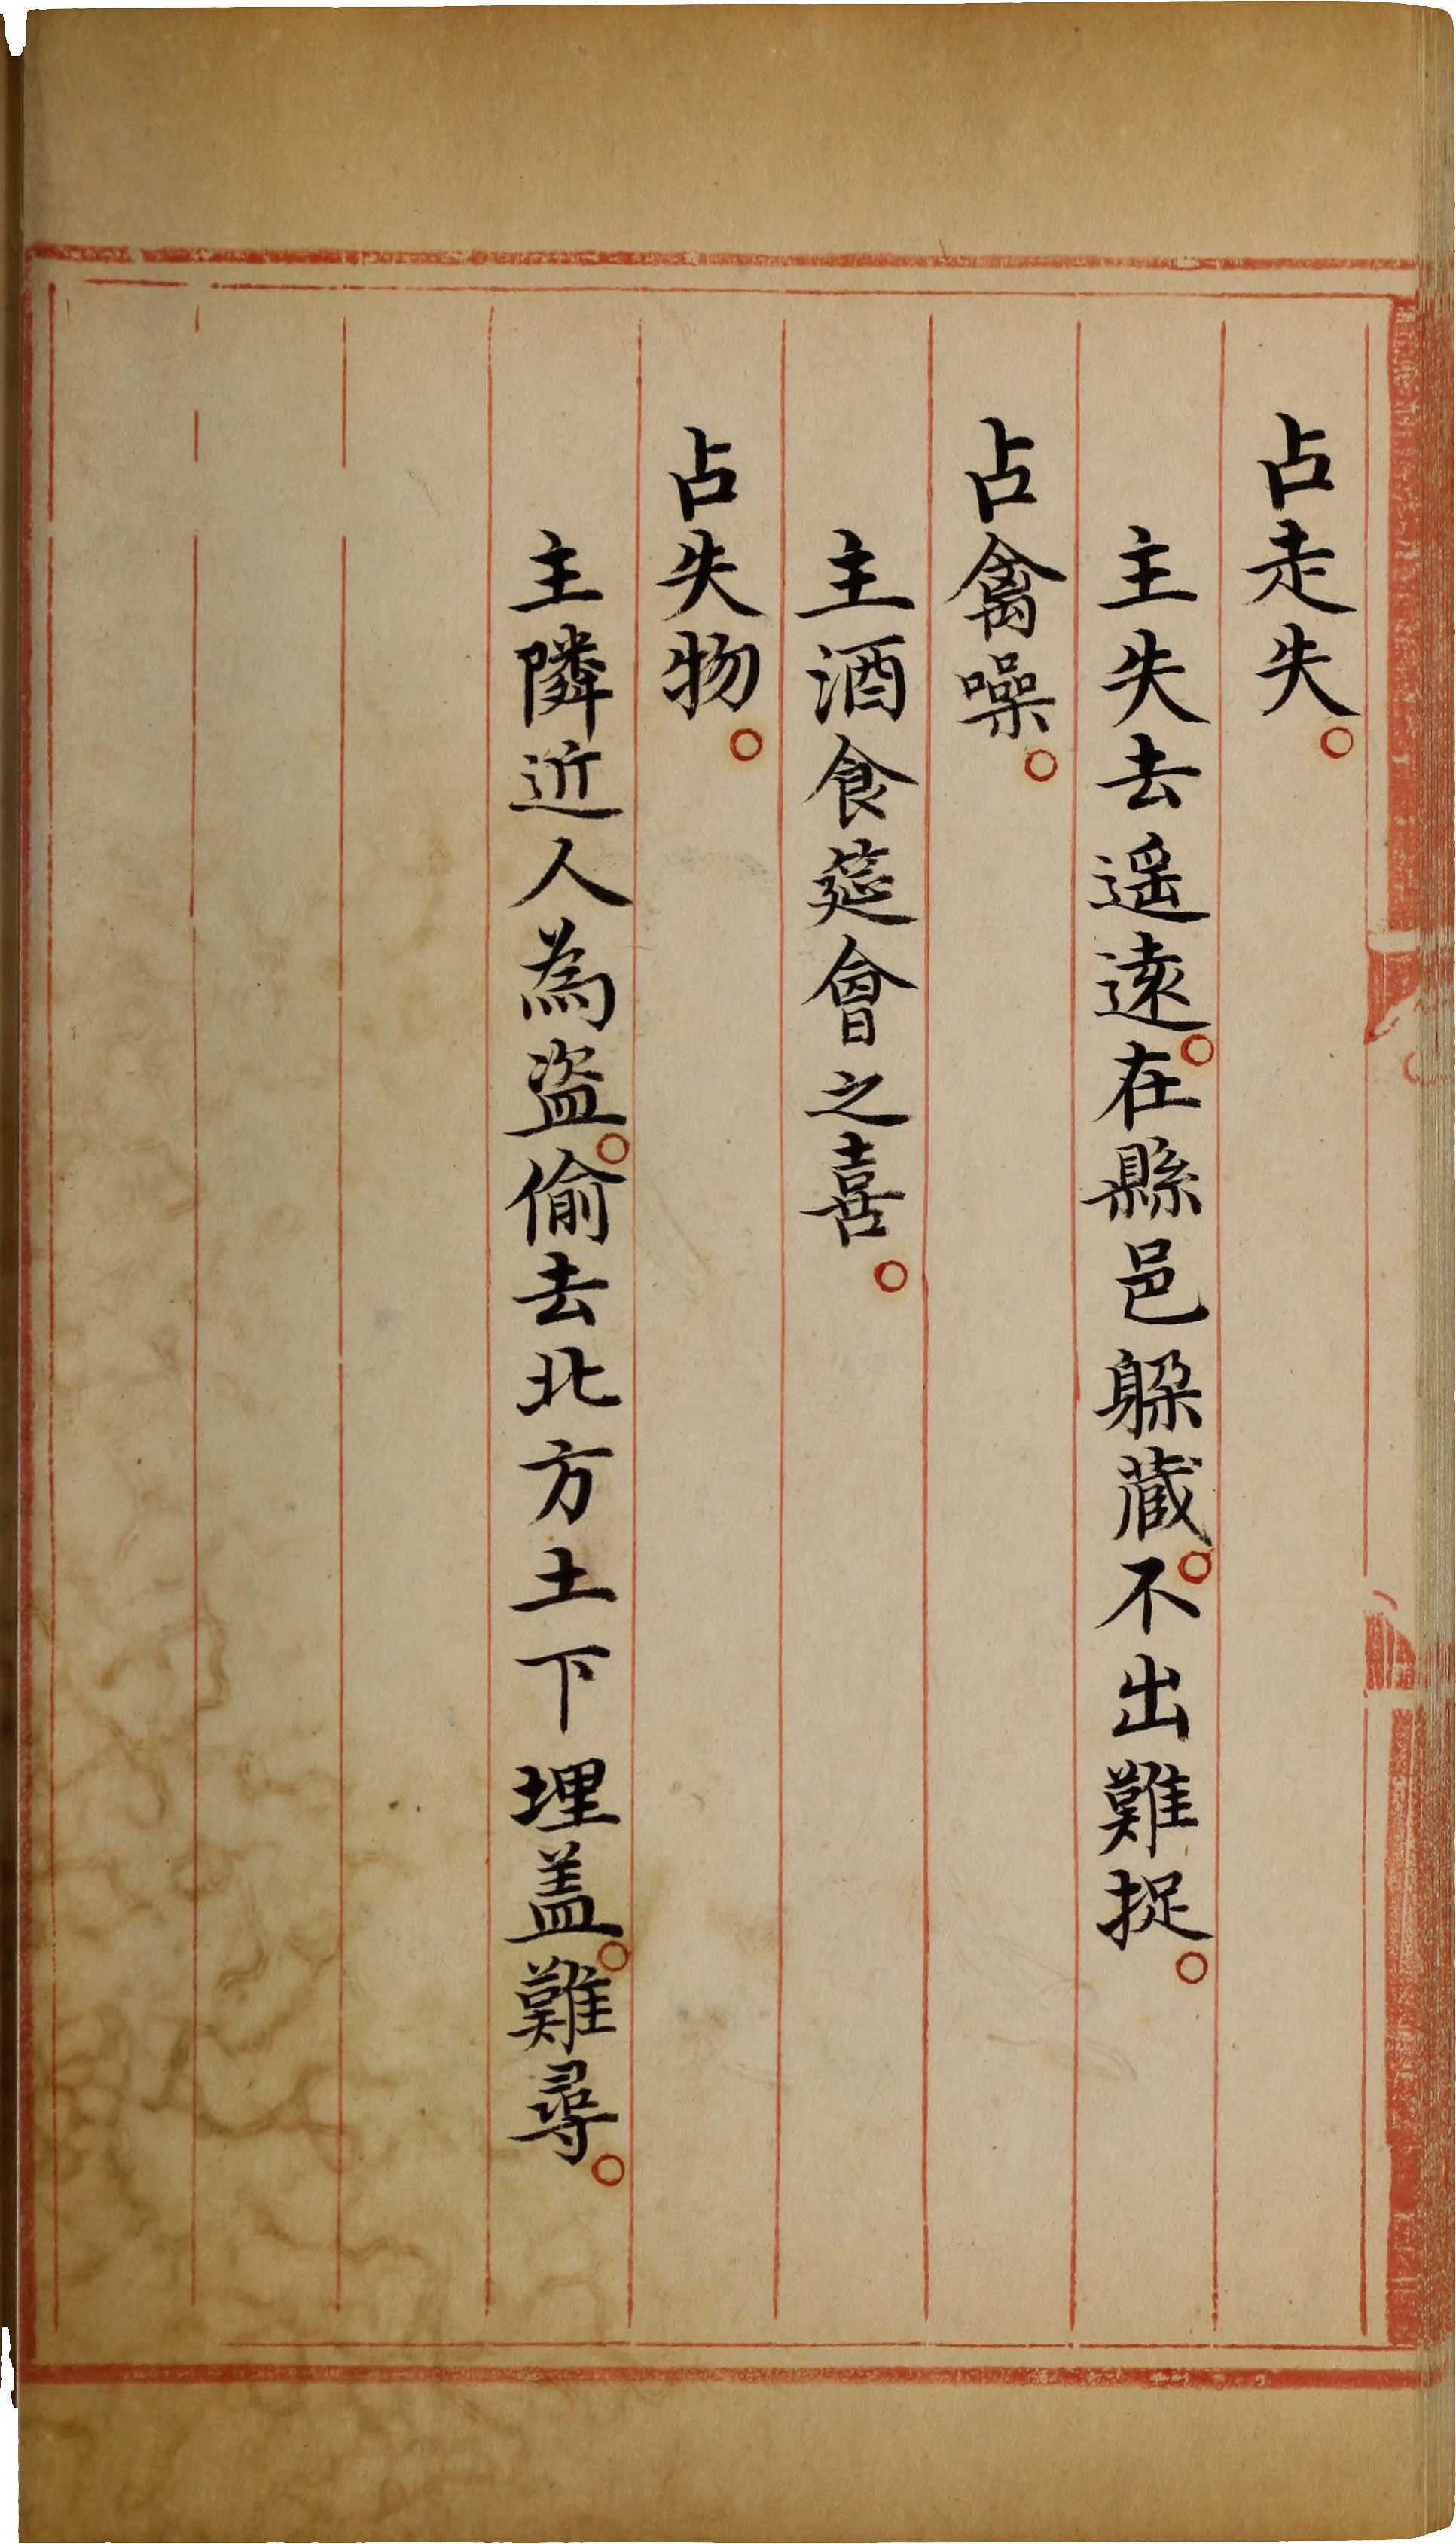 占走失。
主失去遥遠。在縣邑躲蔵。不出難捉。
占禽噪。
主酒食筵會之喜。
占失物。
主隣近人為盗。偷去北方土下埋盖。難尋。